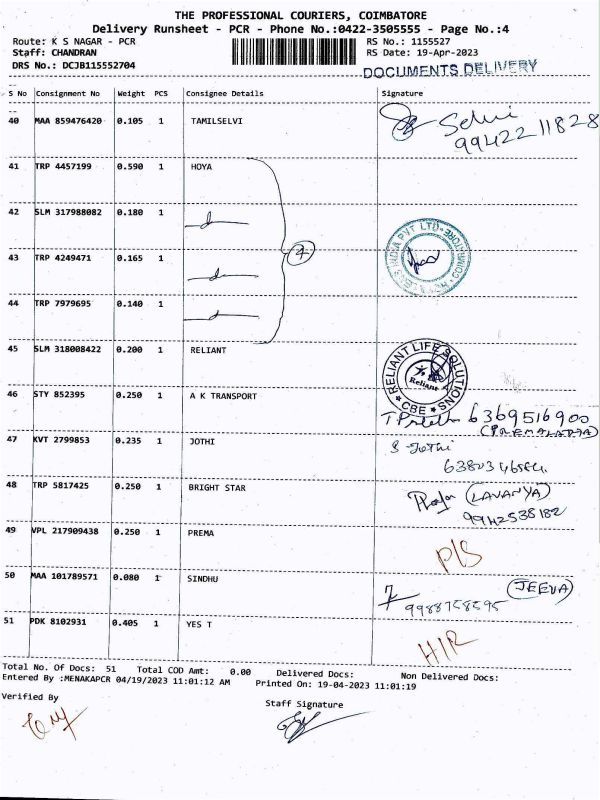 THE PROFESSIONAL COURIERS, COIMBATORE
Delivery Runsheet - PCR - Phone No.:0422-3505555 - Page No.:4
Route: K S NAGAR - PCR RS No.: 1155527
Staff: CHANDRAN RS Date: 19-Apr-2023
DRS No.: DCJB115552704 DOCUMENTS DELIVERY
S No Consignment No Weight PCS Consignee Details Signature
40 MAA 859476420 0.105 1 TAMILSELVI Selvi
9942211828
41 TRP 4457199 0.590 1 HOYA
42 SLM 317988082 0.180 1
43 TRP 4249471 0.165 1 4
44 TRP 7979695 0.140 1
45 SLM 318008422 0.200 1 RELIANT RELIANT LIFE SOLUTIONS
Reliant
★ CBE ★
46 STY 852395 0.250 1 A K TRANSPORT 6369516900
(PREMALATHA)
47 KVT 2799853 0.235 1 JOTHI S Jothi
48 TRP 5817425 0.250 1 BRIGHT STAR (LAVANYA)
9942535182
49 VPL 217909438 0.250 1 PREMA P/S
50 MAA 101789571 0.080 1 SINDHU (JEEVA)
9988758595
51 PDK 8102931 0.405 1 YES T H/R
Total No. Of Docs: 51 Total COD Amt: 0.00 Delivered Docs: Non Delivered Docs:
Entered By :MENAKAPCR 04/19/2023 11:01:12 AM Printed On: 19-04-2023 11:01:19
Verified By Staff Signature